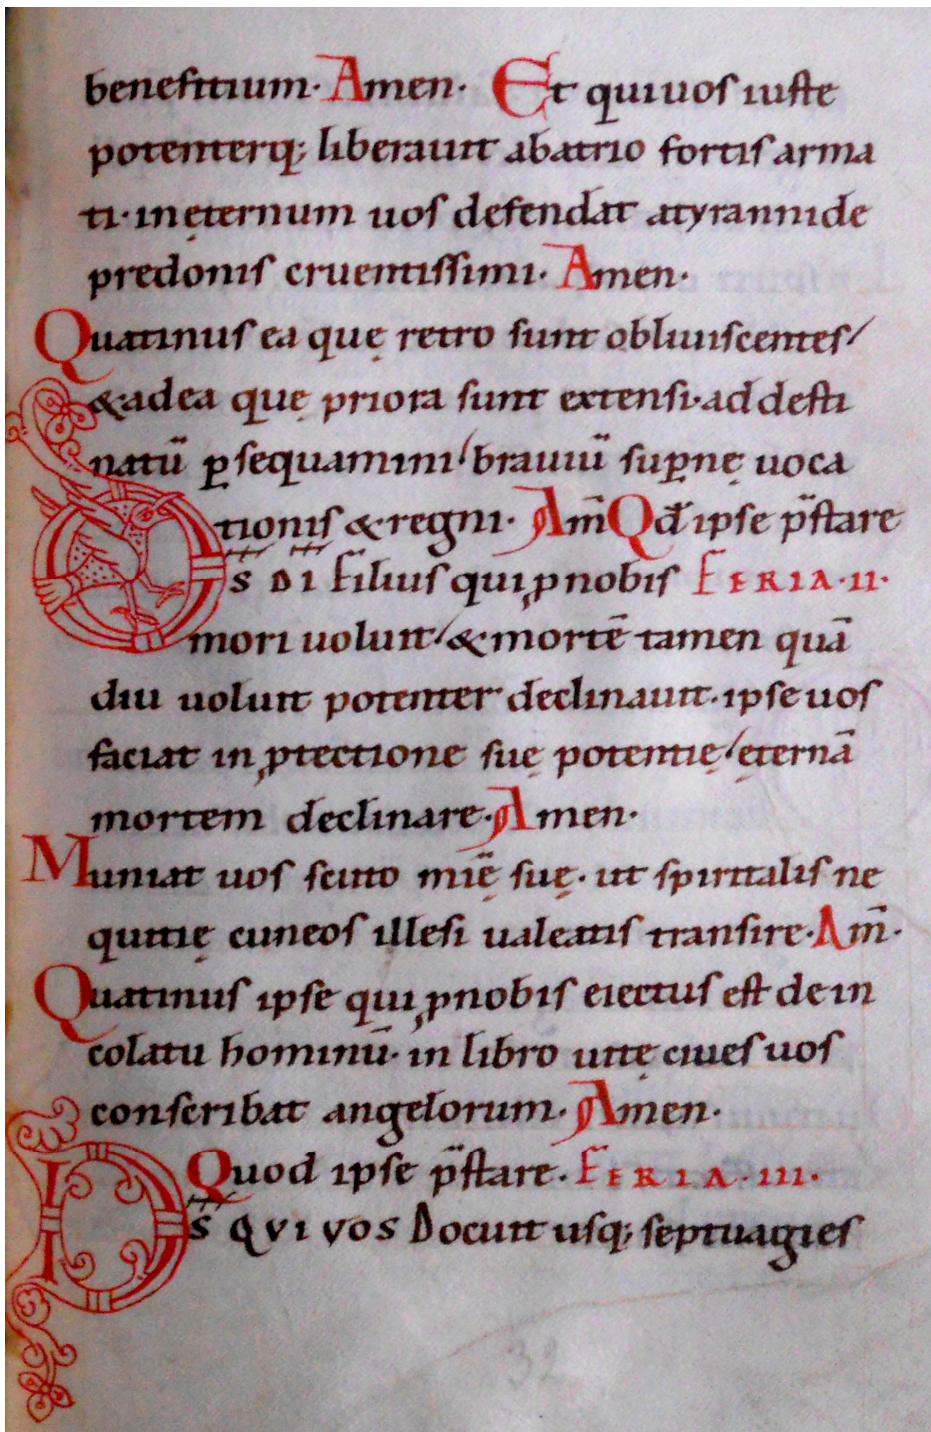 benefitium· Amen· Et qui uos iuste
potenterq; liberauit abatrio fortis arma
ti· in ęternum uos defendat atyrannide
predonis cruentissimi· Amen·
Quatinus ea quę retro sunt obliuiscentes/
& adea quę priora sunt extensi· ad desti
natū p̱sequamini/ brauiū sup̱nę uoca
tionis & regni· Am̄ Qđ ipse p̄stare
D̄s D̄I Filius qui ꝓ nobis FERIA·II·
mori uoluit/ & mortē tamen quā
diu uoluit potenter declinauit· ipse uos
faciat in ꝓtectione suę potentię/ ęternā
mortem declinare· Amen·
Muniat uos scuto mīę suę· ut spiritalis ne
quitię cuneos illesi ualeatis transire· Am̄·
Quatinus ipse qui ꝓ nobis eiectus est de in
colatu hominū· in libro uitę ciues uos
conscribat angelorum· Amen·
Quod ipse p̄stare· FERIA·III·
D̄S QVI VOS Docuit usq; septuagies
32